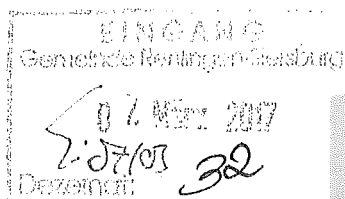 EINGANG
Gemeinde Rehlingen-Siersburg
07. März 2017
07/03 32
Dezernat: